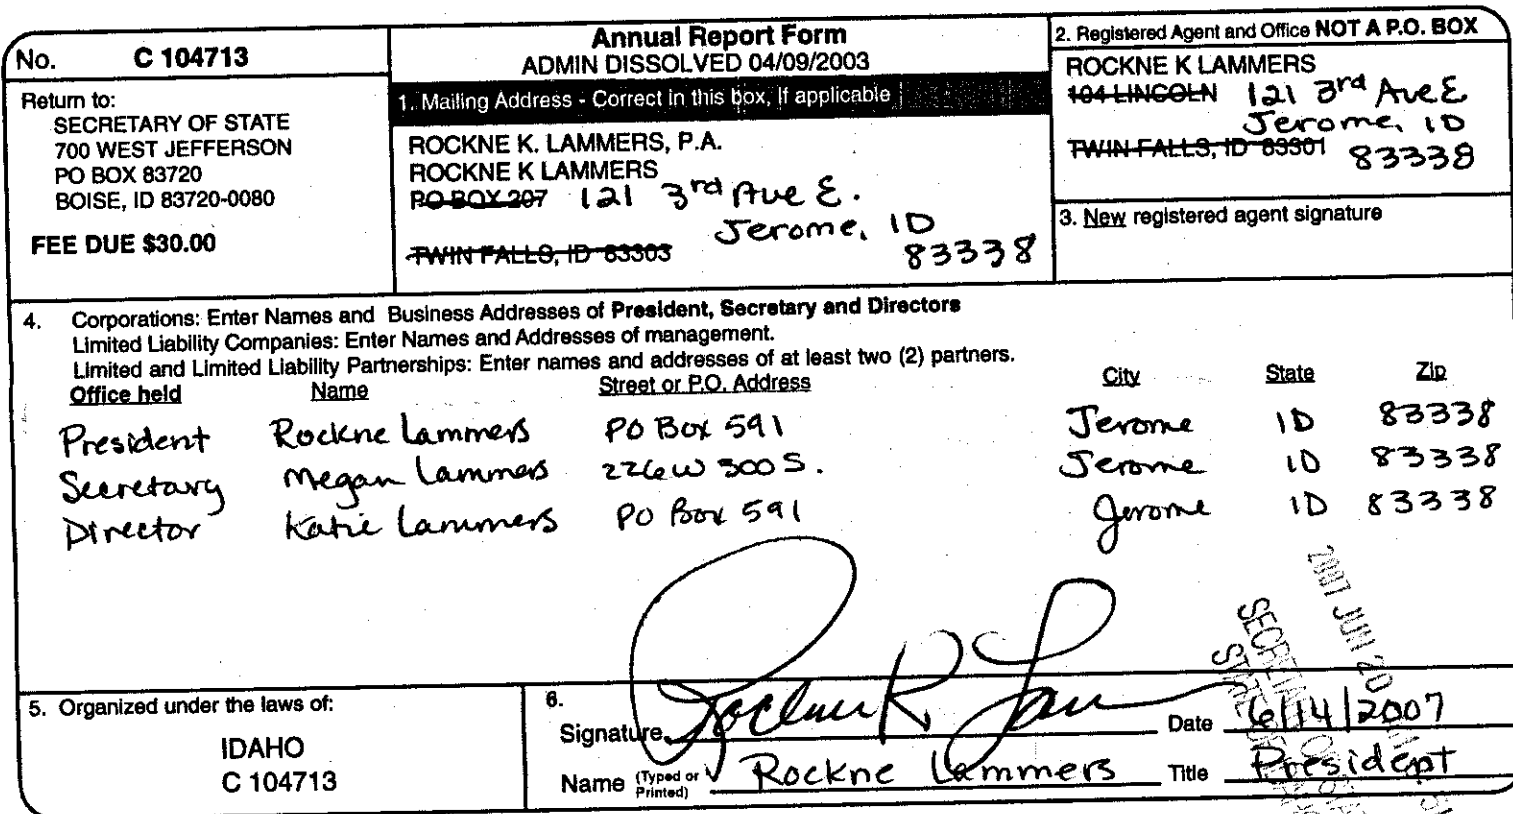 No. C 104713
Return to:
SECRETARY OF STATE
700 WEST JEFFERSON
PO BOX 83720
BOISE, ID 83720-0080
FEE DUE $30.00
Annual Report Form
ADMIN DISSOLVED 04/09/2003
1. Mailing Address - Correct in this box, If applicable
ROCKNE K. LAMMERS, P.A.
ROCKNE K LAMMERS
PO BOX 207 121 3rd Ave E.
Jerome, ID
TWIN FALLS, ID 83303 83338
2. Registered Agent and Office NOT A P.O. BOX
ROCKNE K LAMMERS
104 LINCOLN 121 3rd Ave E
Jerome, ID
TWIN FALLS, ID 83301 83338
3. New registered agent signature
4. Corporations: Enter Names and Business Addresses of President, Secretary and Directors
Limited Liability Companies: Enter Names and Addresses of management.
Limited and Limited Liability Partnerships: Enter names and addresses of at least two (2) partners.
Office held Name Street or P.O. Address City State Zip
President Rockne Lammers PO Box 591 Jerome ID 83338
Secretary Megan Lammers 226 W 300 S. Jerome ID 83338
Director Katie Lammers PO Box 591 Jerome ID 83338
2007 JUN 20
SECRETARY OF
STATE
5. Organized under the laws of:
IDAHO
C 104713
6.
Signature Date 6/14/2007
Name (Typed or Printed) Rockne Lammers Title President